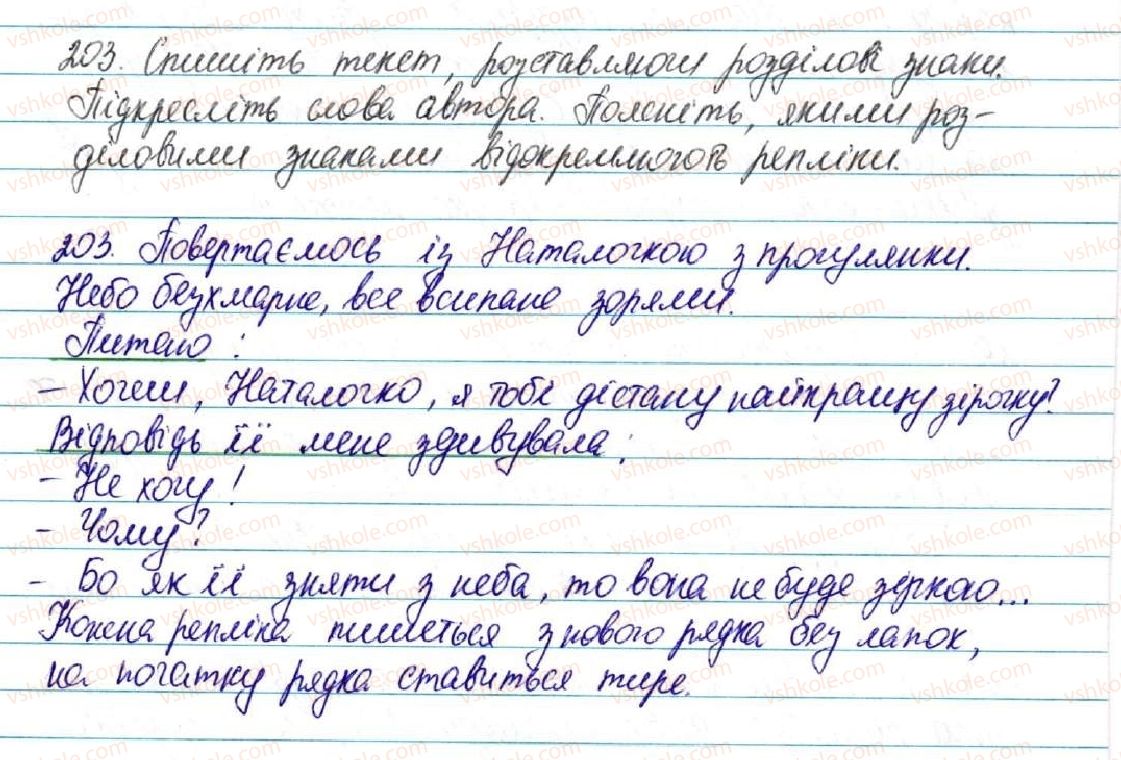 203. Спишіть текст, розставляючи розділові знаки.
Підкресліть слова автора. Поясніть, якими роз-
діловими знаками відокремлюють репліки.
203. Повертаємось із Наталочкою з прогулянки.
Небо безхмарне, все всипане зорями.
Питаю :
– Хочеш, Наталочко, я тобі дістану найкращу зірочку?
Відповідь її мене здивувала :
– Не хочу!
– Чому?
– Бо як її зняти з неба, то вона не буде зіркою...
Кожна репліка пишеться з нового рядка без лапок,
на початку рядка ставиться тире.